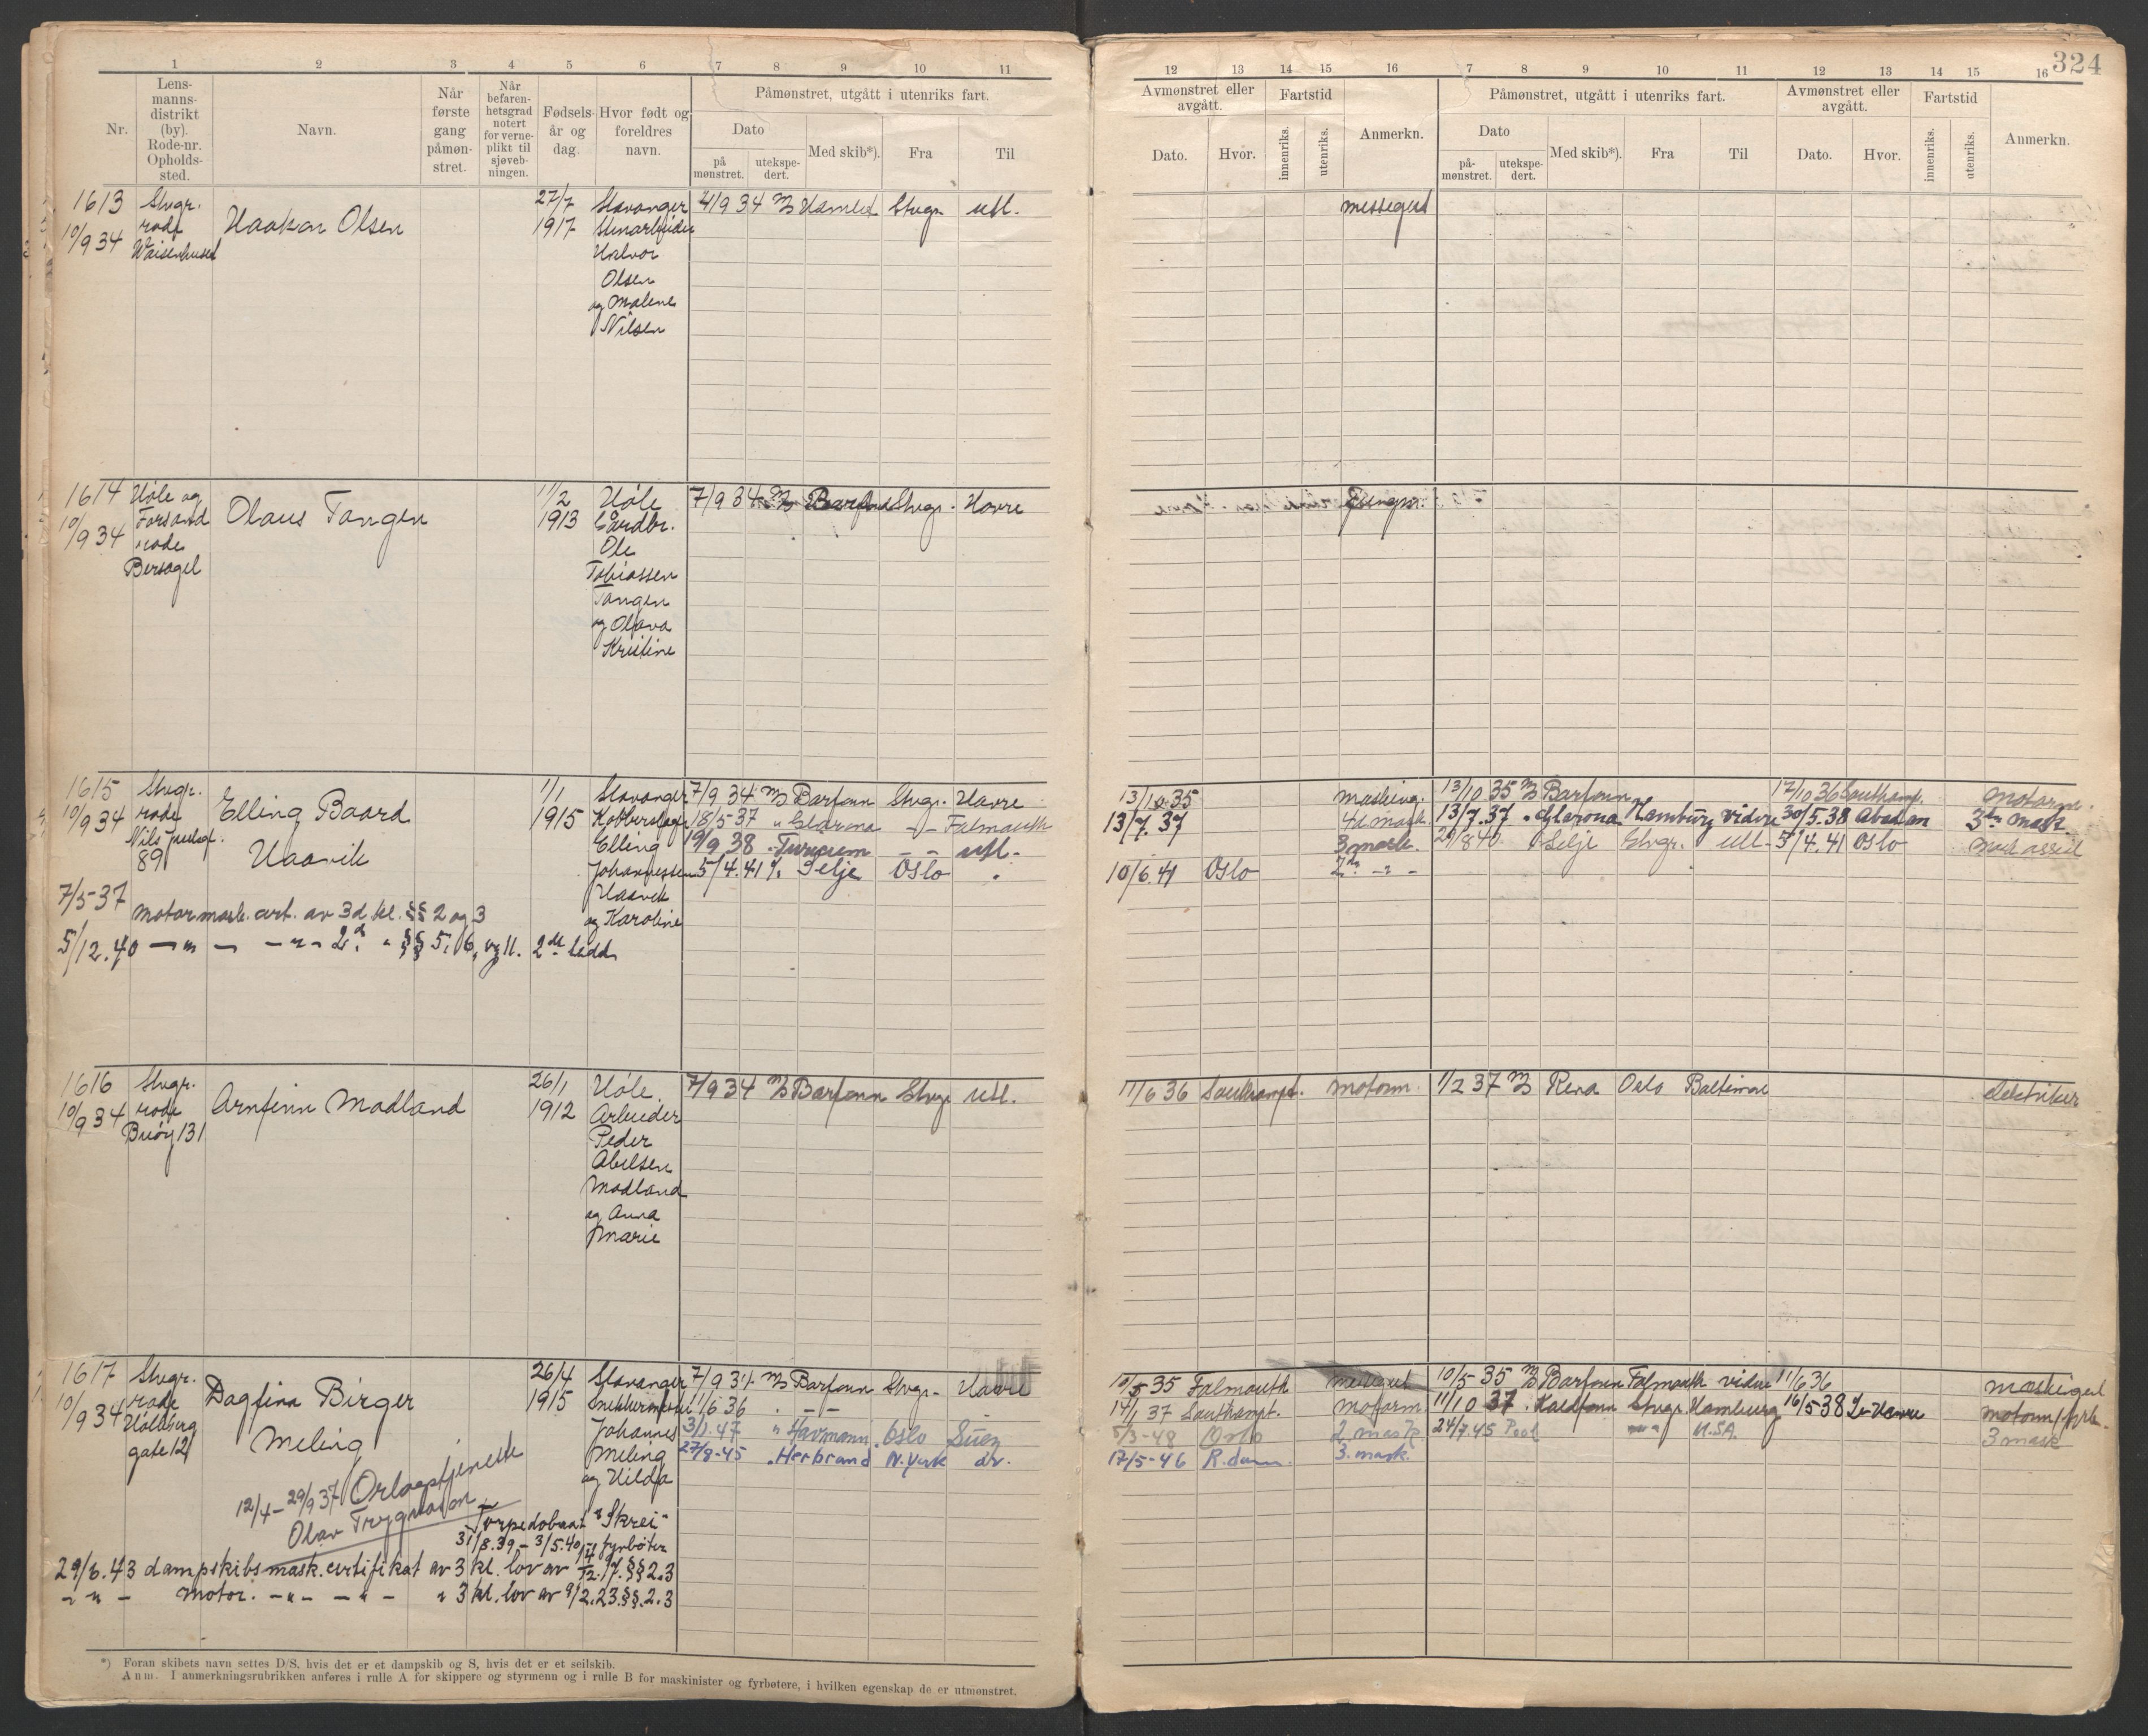 324
1 2 3 4 5 6 7 8 9 10 11
12 13 14 15 16 7 8 9 10 11 12 13 14 15 16
Nr.
Lens-
manns-
distrikt
(by).
Rode-nr.
Opholds-
sted.
Navn.
Når
første
gang
påmøn-
stret.
Når
befaren-
hetsgrad
notert
for verne-
plikt til
sjøveb-
ningen.
Fødsels-
år og
dag.
Hvor født og
foreldres
navn.
Påmønstret, utgått i utenriks fart.
Dato
på
mønstret.
utekspe-
dert.
Med skib*).
Fra
Til
Avmønstret eller
avgått.
Dato.
Hvor.
Fartstid
innenriks.
utenriks.
Anmerkn.
Påmønstret, utgått i utenriks fart.
Dato
på-
mønstret.
utekspe-
dert.
Med skib*).
Fra
Til
Avmønstret eller
avgått.
Dato.
Hvor.
Fartstid
innenriks.
utenriks.
Anmerkn.
1613
10/9 34
Stvgr.
rode
Waisenhuset
Haakon Olsen
27/7
1917
Stavanger
Stenarbeider
Halvor
Olsen
og Malene
Nilsen
4/9 34 Stvgr. utl.
messegut
1614
10/9 34
Høle og
Forsand
rode
Bersagel
Olaus Tangen
11/2
1913
Høle
Gårdbr.
Ole
Tobiassen
Tangen
og Olava
Kristine
7/9 34 Ms Barfonn Stvgr. Havre
1615
10/9 34
Stvgr.
rode
89
Elling Baard
Haavik
1/1
1915
Stavanger
Elling
Johannessen
Haavik
og Karoline
7/9 34 Ms Barfonn Stvgr. Havre
18/5-37 " Glarona - " - Falmouth
19/9 38 - " - utl.
5/4.41 Selje Oslo
7/5-37
motormask. cert. av 3d kl. §§ 2 og 3
5/12.40 - " - - " - 2d. " §§ 5, 6, og 11. 2det ledd
13/10.35 masking. 13/10 35 Ms Barfonn 17/10 36 Southamp. motorm.
13/7.37 4d mask 13/7.37 " Glarona Hamburg vidre 30/5.38 Abadan 3de mask
3 mask. 29/8 40 Selje Stvgr. utl. 5/4.41 Oslo
10/6.41 Oslo 2de - " -
1616
10/9 34
Stvgr.
rode
Buøy 131
Arnfinn Modland
26/1
1912
Høle
Arbeider
Peder
Abelsen
Modland
og Anna
Marie
7/9 34 Ms Barfonn Stvgr. utl.
11/6 36 Southampt. motorm. 1/2 37 Ms Rena Oslo Baltimore elektriker
1617
10/9 34
Stvgr.
rode
Holberg
gate 12
Dagfinn Birger
Meling
26/4
1915
Stavanger
Johannes
Meling
og Hilda
7/9 34 Ms Barfonn Stvgr. Havre
11/6 36 " - " -
3/1.47 " Havmann Oslo Suez
27/8-45 " Herbrand N.York
10/5 35 Falmouth messegut 10/5-35 Ms Barfonn Falmouth vidre 11/6 36 maskigut
14/1 37 Southampt. motorm. 11/10 37 Kaldfonn Stvgr. Hamburg 16/5-38 Le Havre
5/3-48 Oslo 2 mask 24/7.45 Pool U.S.A. 3 mask
17/5-46 R.dam. 3. mask.
12/4-29/9 37 Orlogstjeneste
Olav Trygvason
Torpedobaat "Skrei"
31/8.39 - 3/5.40 fyrbøter
29/6.43 dampskibsmask.certifikat av 3 kl. lov av 17. §§ 2.3
- " - motor. - " - - " - " 3 kl. lov av 9/2.23. §§. 2.3
*) Foran skibets navn settes D/S, hvis det er et dampskib og S, hvis det er et seilskib.
Anm. I anmerkningsrubrikken anføres i rulle A for skippere og styrmenn og i rulle B for maskinister og fyrbøtere, i hvilken egenskap de er utmønstret.